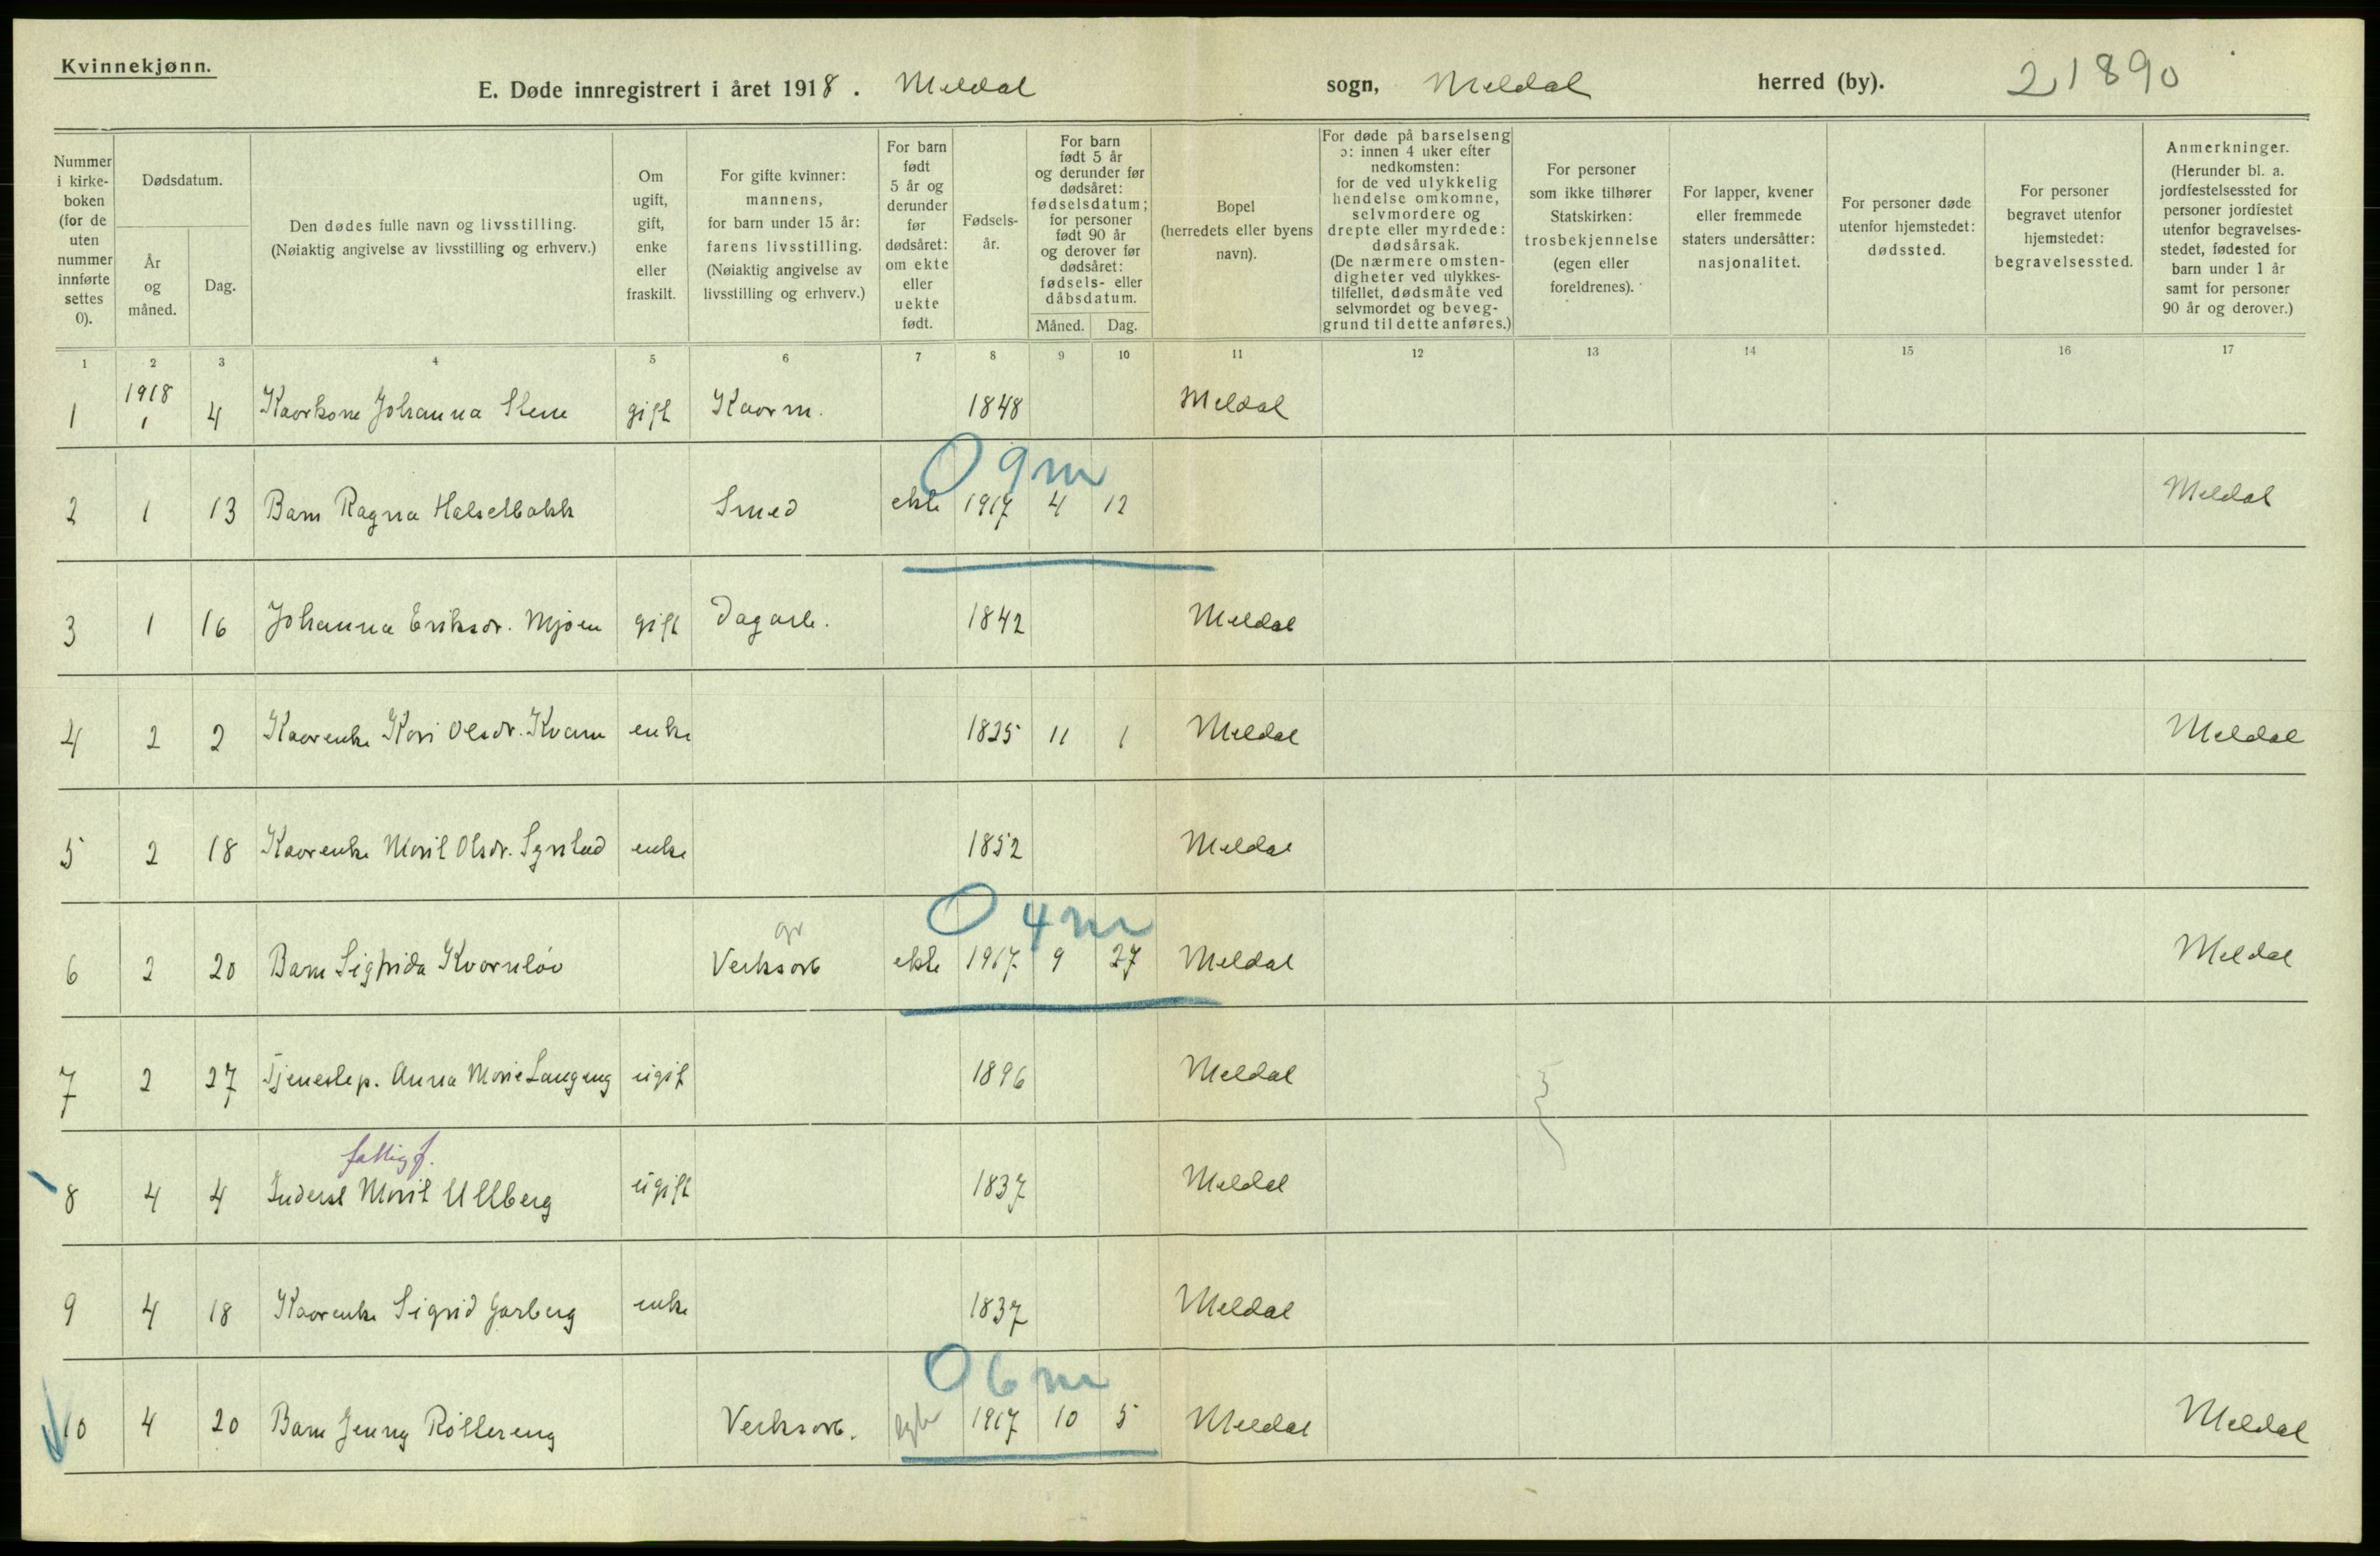 Kvinnekjønn.
E. Døde innregistrert i året 1918. Meldal sogn, Meldal herred (by). 21890
Nummer i kirkeboken (for de uten nummer innførte settes 0).
Dødsdatum.
År og måned.
Dag.
Den dødes fulle navn og livsstilling. (Nøiaktig angivelse av livsstilling og erhverv.)
Om ugift, gift, enke eller fraskilt.
For gifte kvinner: mannens, for barn under 15 år: farens livsstilling. (Nøiaktig angivelse av livsstilling og erhverv.)
For barn født 5 år og derunder før dødsåret: om ekte eller uekte født.
Fødselsår.
For barn født 5 år og derunder før dødsåret: fødselsdatum; for personer født 90 år og derover før dødsåret: fødsels- eller dåbsdatum.
Måned.
Dag.
Bopel (herredets eller byens navn).
For døde på barselseng ɔ: innen 4 uker efter nedkomsten: for de ved ulykkelig hendelse omkomne, selvmordere og drepte eller myrdede: dødsårsak. (De nærmere omstendigheter ved ulykkestilfellet, dødsmåte ved selvmordet og beveggrund til dette anføres.)
For personer som ikke tilhører Statskirken: trosbekjennelse (egen eller foreldrenes).
For lapper, kvener eller fremmede staters undersåtter: nasjonalitet.
For personer døde utenfor hjemstedet: dødssted.
For personer begravet utenfor hjemstedet: begravelsessted.
Anmerkninger. (Herunder bl. a. jordfestelsessted for personer jordfestet utenfor begravelsesstedet, fødested for barn under 1 år samt for personer 90 år og derover.)
1 2 3 4 5 6 7 8 9 10 11 12 13 14 15 16 17
1918
1 1 4 Kaarkone Johanna Stene gift Kaarm. 1848 Meldal
0 9 m
2 1 13 Barn Ragna Halselbakk Smed ekte 1917 4 12 Meldal
3 1 16 Johanna Eriksdr. Mjøen gift Dagarb. 1842 Meldal
4 2 2 Kaarenke Kari Olsdr. Kvam enke 1825 11 1 Meldal Meldal
5 2 18 Kaarenke Marit Olsdr. enke 1852 Meldal
0 4 m
gr
6 2 20 Barn Sigfrida Kvernløv Verksarb ekte 1917 9 27 Meldal Meldal
7 2 27 Tjenestep. Anna Marie Langeng ugift 1896 Meldal
fattigf.
8 4 4 Inderst Marit Ullberg ugift 1837 Meldal
9 4 18 Kaarenke Sigrid Garberg enke 1837 Meldal
0 6 m
10 4 20 Barn Jenny Røttereng Verksarb. 1917 10 5 Meldal Meldal